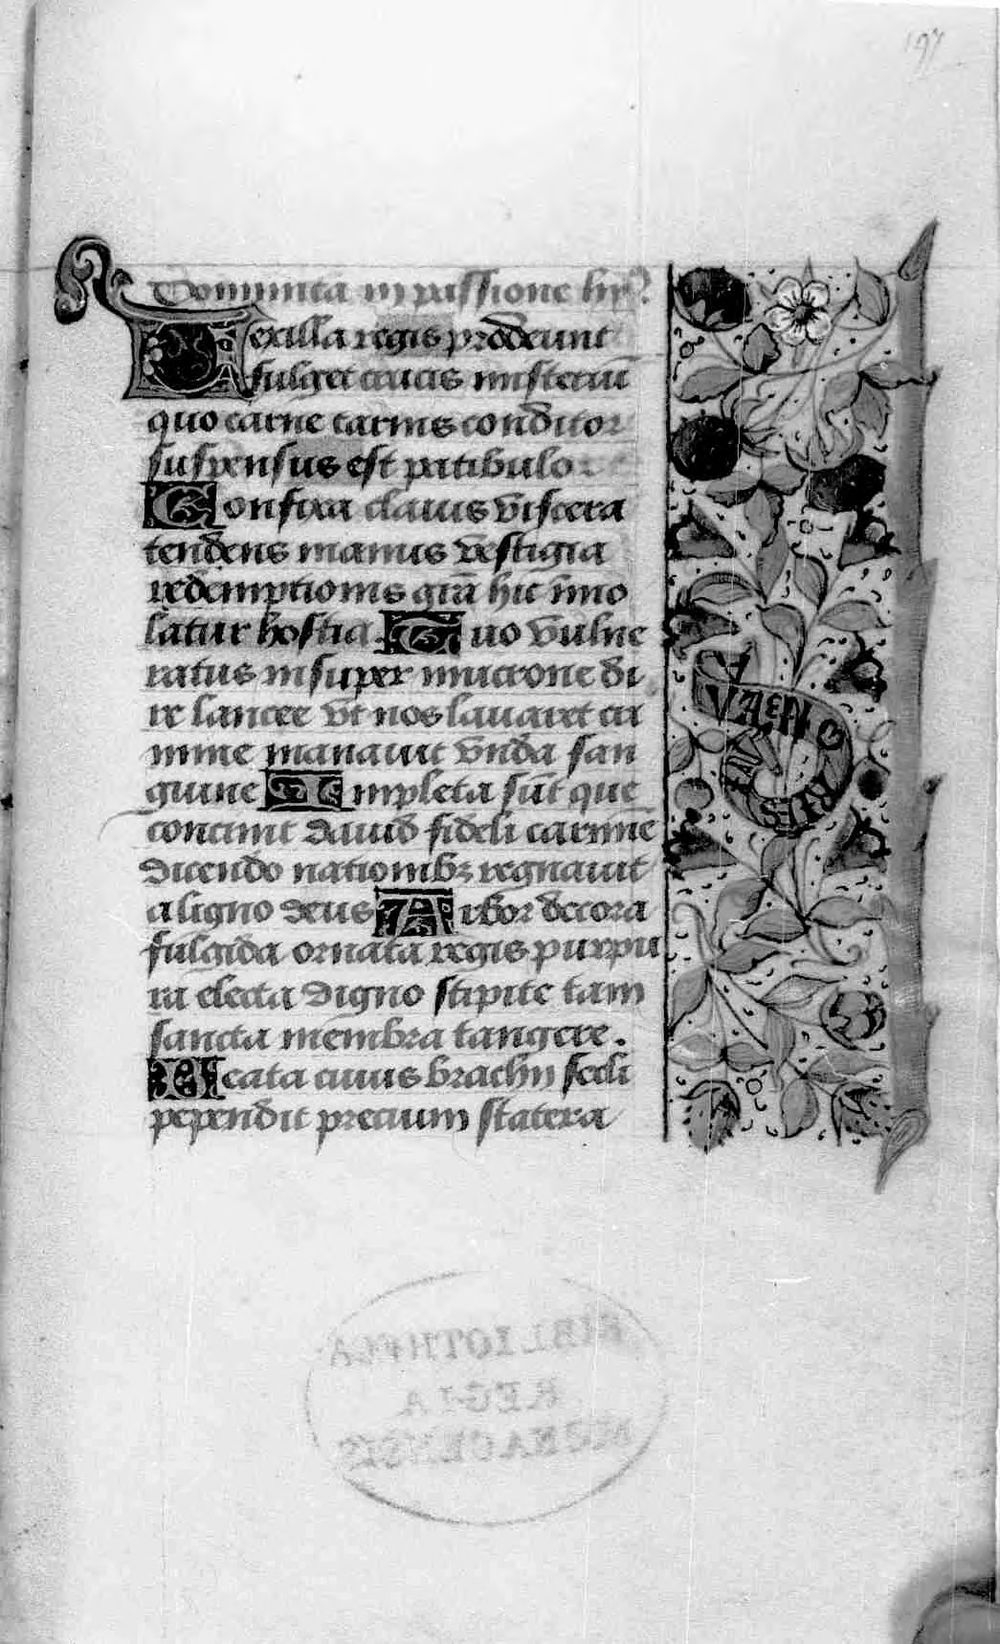 197
Dominica in passione hỹ?
Vexilla regis prodeunt
fulget crucis misteriū
quo carne carnis conditor
suspensus est patibulo
Confixa clavis viscera
tendens manus vestigia
redemptionis grā hic īmo
latur hostia. Quo vulne
ratus insuper mucrone di
re lancee vt nos lavaret cri
mine manavit vnda san
guine Impleta sūt que
concinit david fideli carmine
dicendo nationibꝫ regnavit
a ligno deus Arbor decora
fulgida ornata regis purpu
ra electa digno stipite tam
sancta membra tangere.
Beata cuius brachii secli
pependit precium statera
BIBLIOTHECA
REGIA
MONACENSIS